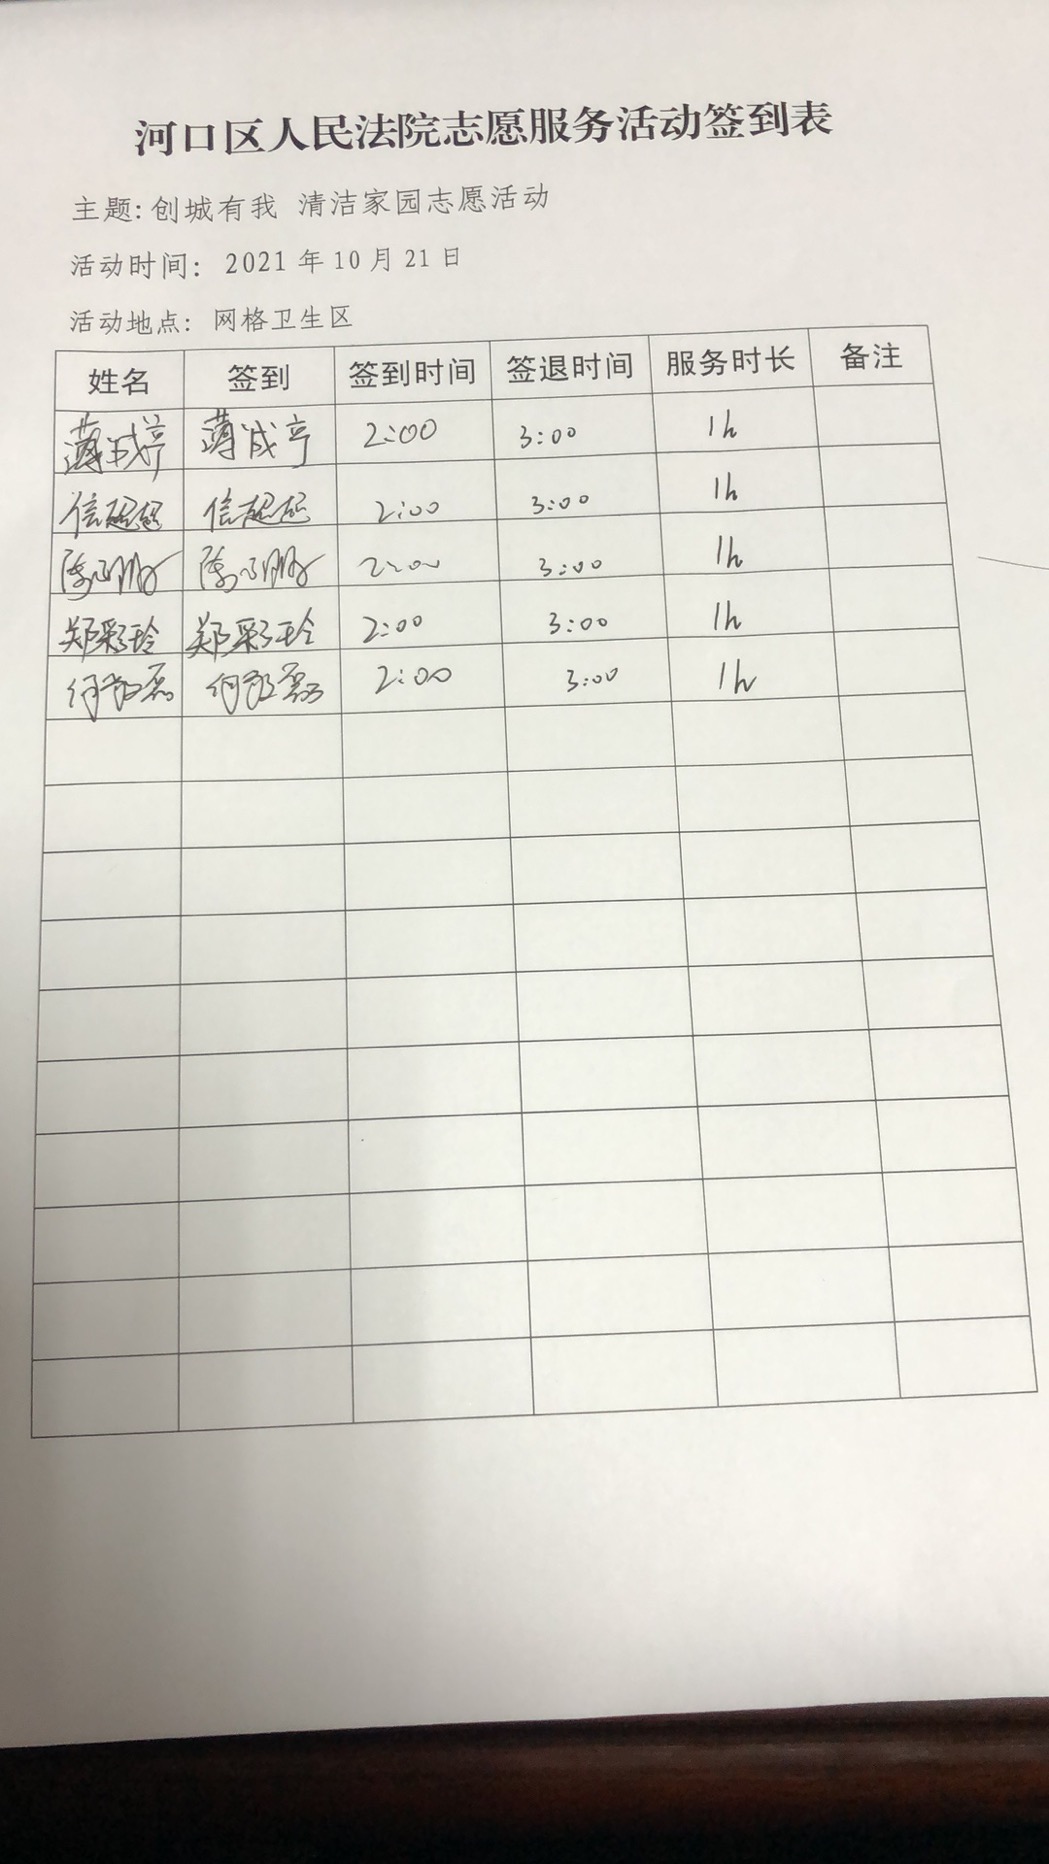 河口区人民法院志愿服务活动签到表
主题:创城有我 清洁家园志愿活动
活动时间: 2021年10月21日
活动地点: 网格卫生区
姓名 签到 签到时间 签退时间 服务时长 备注
薄成亭 薄成亭 2:00 3:00 1h
信超超 信超超 2:00 3:00 1h
2:00 3:00 1h
郑彩玲 郑彩玲 2:00 3:00 1h
何 磊 何 磊 2:00 3:00 1h